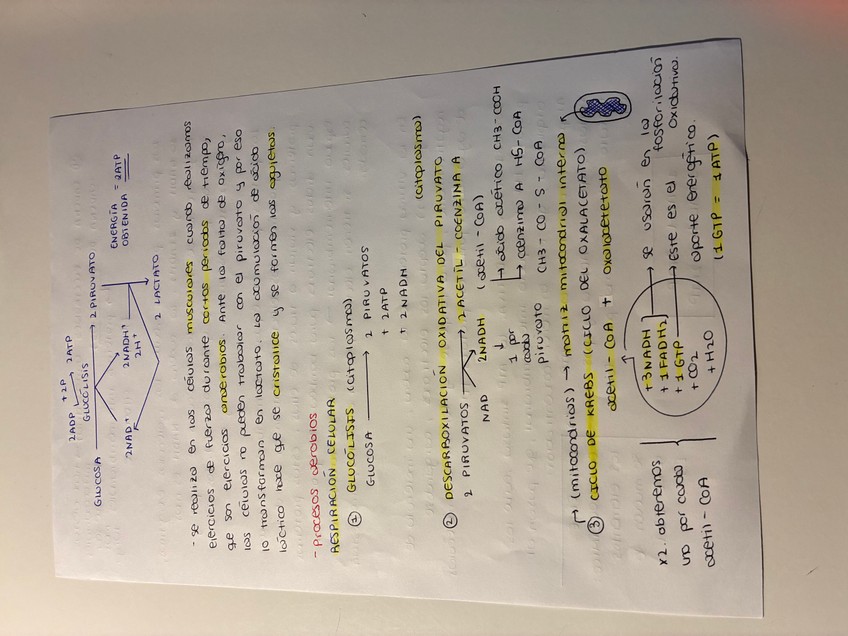 2ADP + 2P
2ATP
GLUCÓLISIS
GLUCOSA → 2 PIRUVATO
2NAD⁺
2NADH⁺
2H⁺
ENERGÍA OBTENIDA = 2ATP
2 LACTATO
- Se realiza en las células musculares cuando realizamos
ejercicios de fuerza durante cortos periodos de tiempo,
que son ejercicios anaerobios. Ante la falta de oxígeno,
las células no pueden trabajar con el piruvato y por eso
lo transforman en lactato. La acumulación de ácido
láctico hace que se cristalice y se formen las agujetas.
- Procesos aerobios
RESPIRACIÓN CELULAR
① GLUCÓLISIS (citoplasma)
GLUCOSA → 2 PIRUVATOS
+ 2ATP
+ 2NADH
(citoplasma)
② DESCARBOXILACIÓN OXIDATIVA DEL PIRUVATO
2 PIRUVATOS → 2 ACETIL-COENZINA A
NAD 2NADH (acetil-CoA)
↓ 1 por cada piruvato
↳ ácido acético CH3-COOH
↳ coenzima A HS-CoA
CH3-CO-S-CoA
(mitocondrias) → matriz mitocondrial interna
③ CICLO DE KREBS (CICLO DEL OXALACETATO)
acetil-CoA + oxalacetetato
x2. obtenemos
uno por cada
acetil-CoA
+3NADH
+1FADH₂
→ se usarán en la fosforilación oxidativa.
+1GTP
→ Este es el aporte energético.
(1 GTP = 1ATP)
+CO₂
+H2O